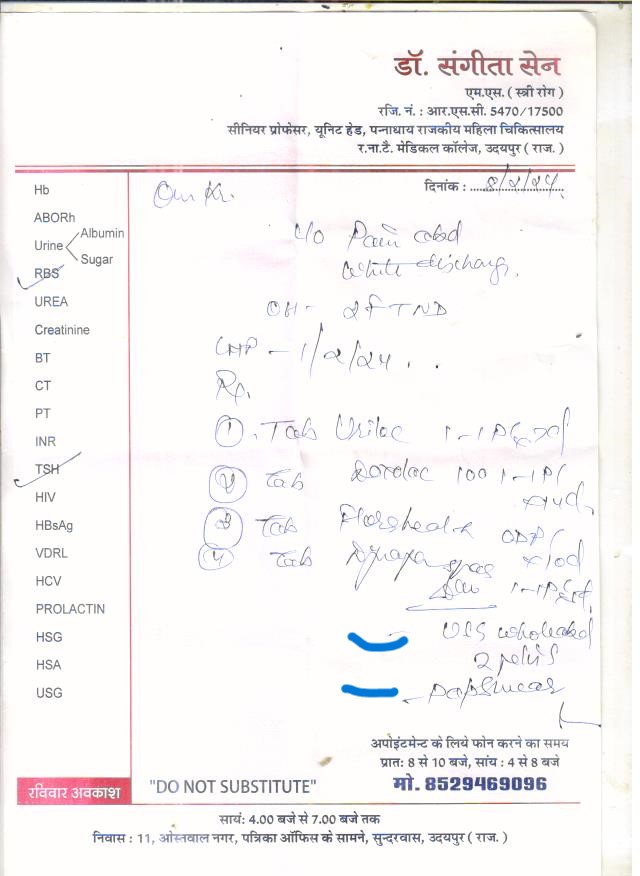 डॉ. संगीता सेन
एम.एस. ( स्त्री रोग )
रजि. नं. : आर.एस.सी. 5470/17500
सीनियर प्रोफेसर, यूनिट हेड, पन्नाधाय राजकीय महिला चिकित्सालय
र.ना.टै. मेडिकल कॉलेज, उदयपुर ( राज. )
दिनांक : 8/2/24
Hb
ABORh
Urine Albumin
Sugar
RBS
UREA
Creatinine
BT
CT
PT
INR
TSH
HIV
HBsAg
VDRL
HCV
PROLACTIN
HSG
HSA
USG
C/o Pain abd
White discharge,
OH - 2 FTND
LMP - 1/2/24
Rp.
① Tab
② Tab 100 1-1 PC
③ Tab
④ Tab spas
USG whole abd
2 pelvis
Papsmear
अपोइंटमेन्ट के लिये फोन करने का समय
प्रात: 8 से 10 बजे, सांय : 4 से 8 बजे
मो. 8529469096
रविवार अवकाश
"DO NOT SUBSTITUTE"
सायं: 4.00 बजे से 7.00 बजे तक
निवास : 11, ओस्तवाल नगर, पत्रिका ऑफिस के सामने, सुन्दरवास, उदयपुर ( राज. )